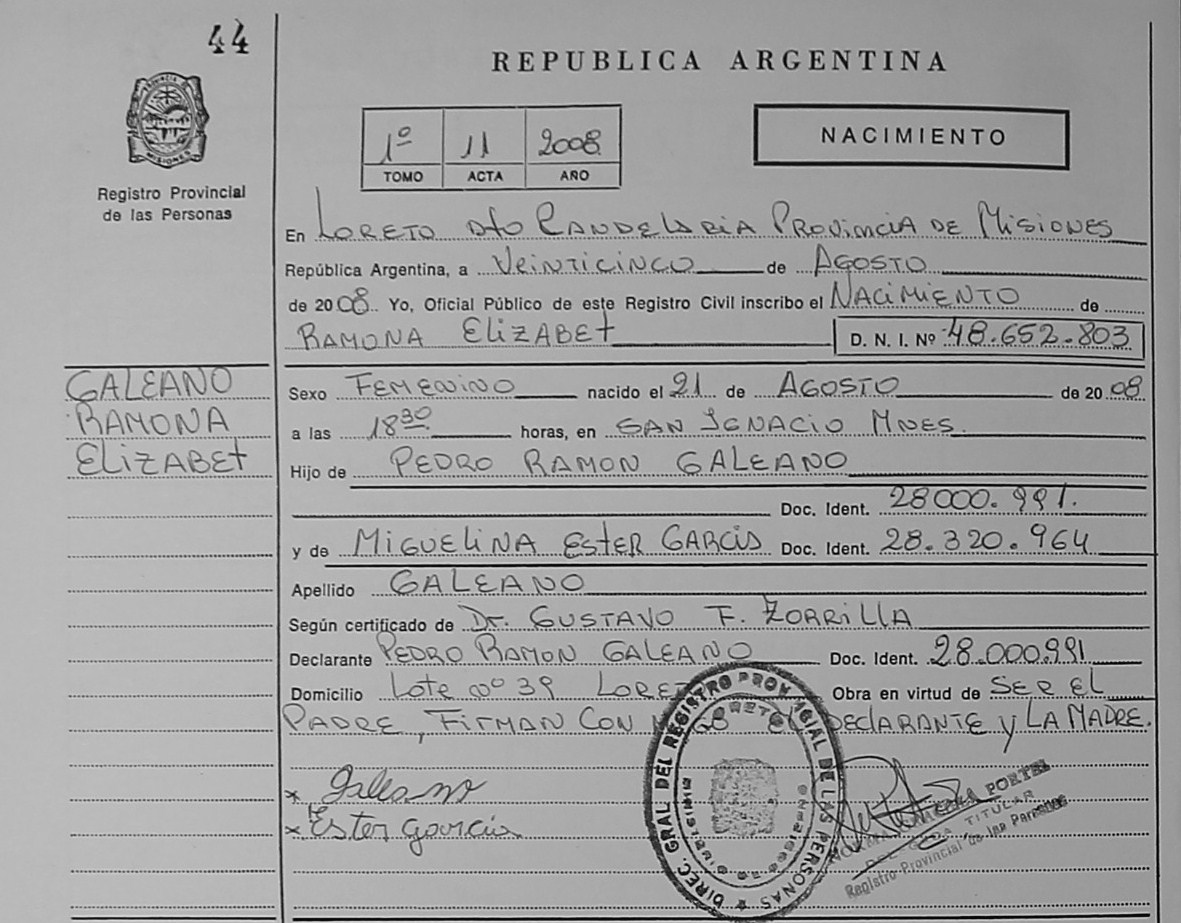 44
REPUBLICA ARGENTINA
PROVINCIA DE
MISIONES
Registro Provincial
de las Personas
1º 11 2008
TOMO ACTA AÑO
NACIMIENTO
En LORETO Dto CANDELARIA PROVINCIA DE MISIONES
República Argentina, a VEINTICINCO de AGOSTO
de 2008. Yo, Oficial Público de este Registro Civil inscribo el NACIMIENTO de
RAMONA ELIZABET D. N. I. Nº 48.652.803
GALEANO
RAMONA
ELIZABET
Sexo FEMENINO nacido el 21 de AGOSTO de 2008
a las 18 30 horas, en SAN IGNACIO MNES.
Hijo de PEDRO RAMON GALEANO
Doc. Ident. 28000.991.
y de MIGUELINA ESTER GARCIA Doc. Ident. 28.320.964
Apellido GALEANO
Según certificado de Dr. GUSTAVO F. ZORRILLA
Declarante PEDRO RAMON GALEANO Doc. Ident. 28.000.991
Domicilio Lote nº 39 LORETO Obra en virtud de SER EL
PADRE, FIRMAN CON EL DECLARANTE Y LA MADRE.
x Galeano
x Ester Garcia
DIREC. GRAL DEL REGISTRO PROVINCIAL DE LAS PERSONAS
LORETO
MISIONES
PORTEL
TITULAR
Registro Provincial de las Personas